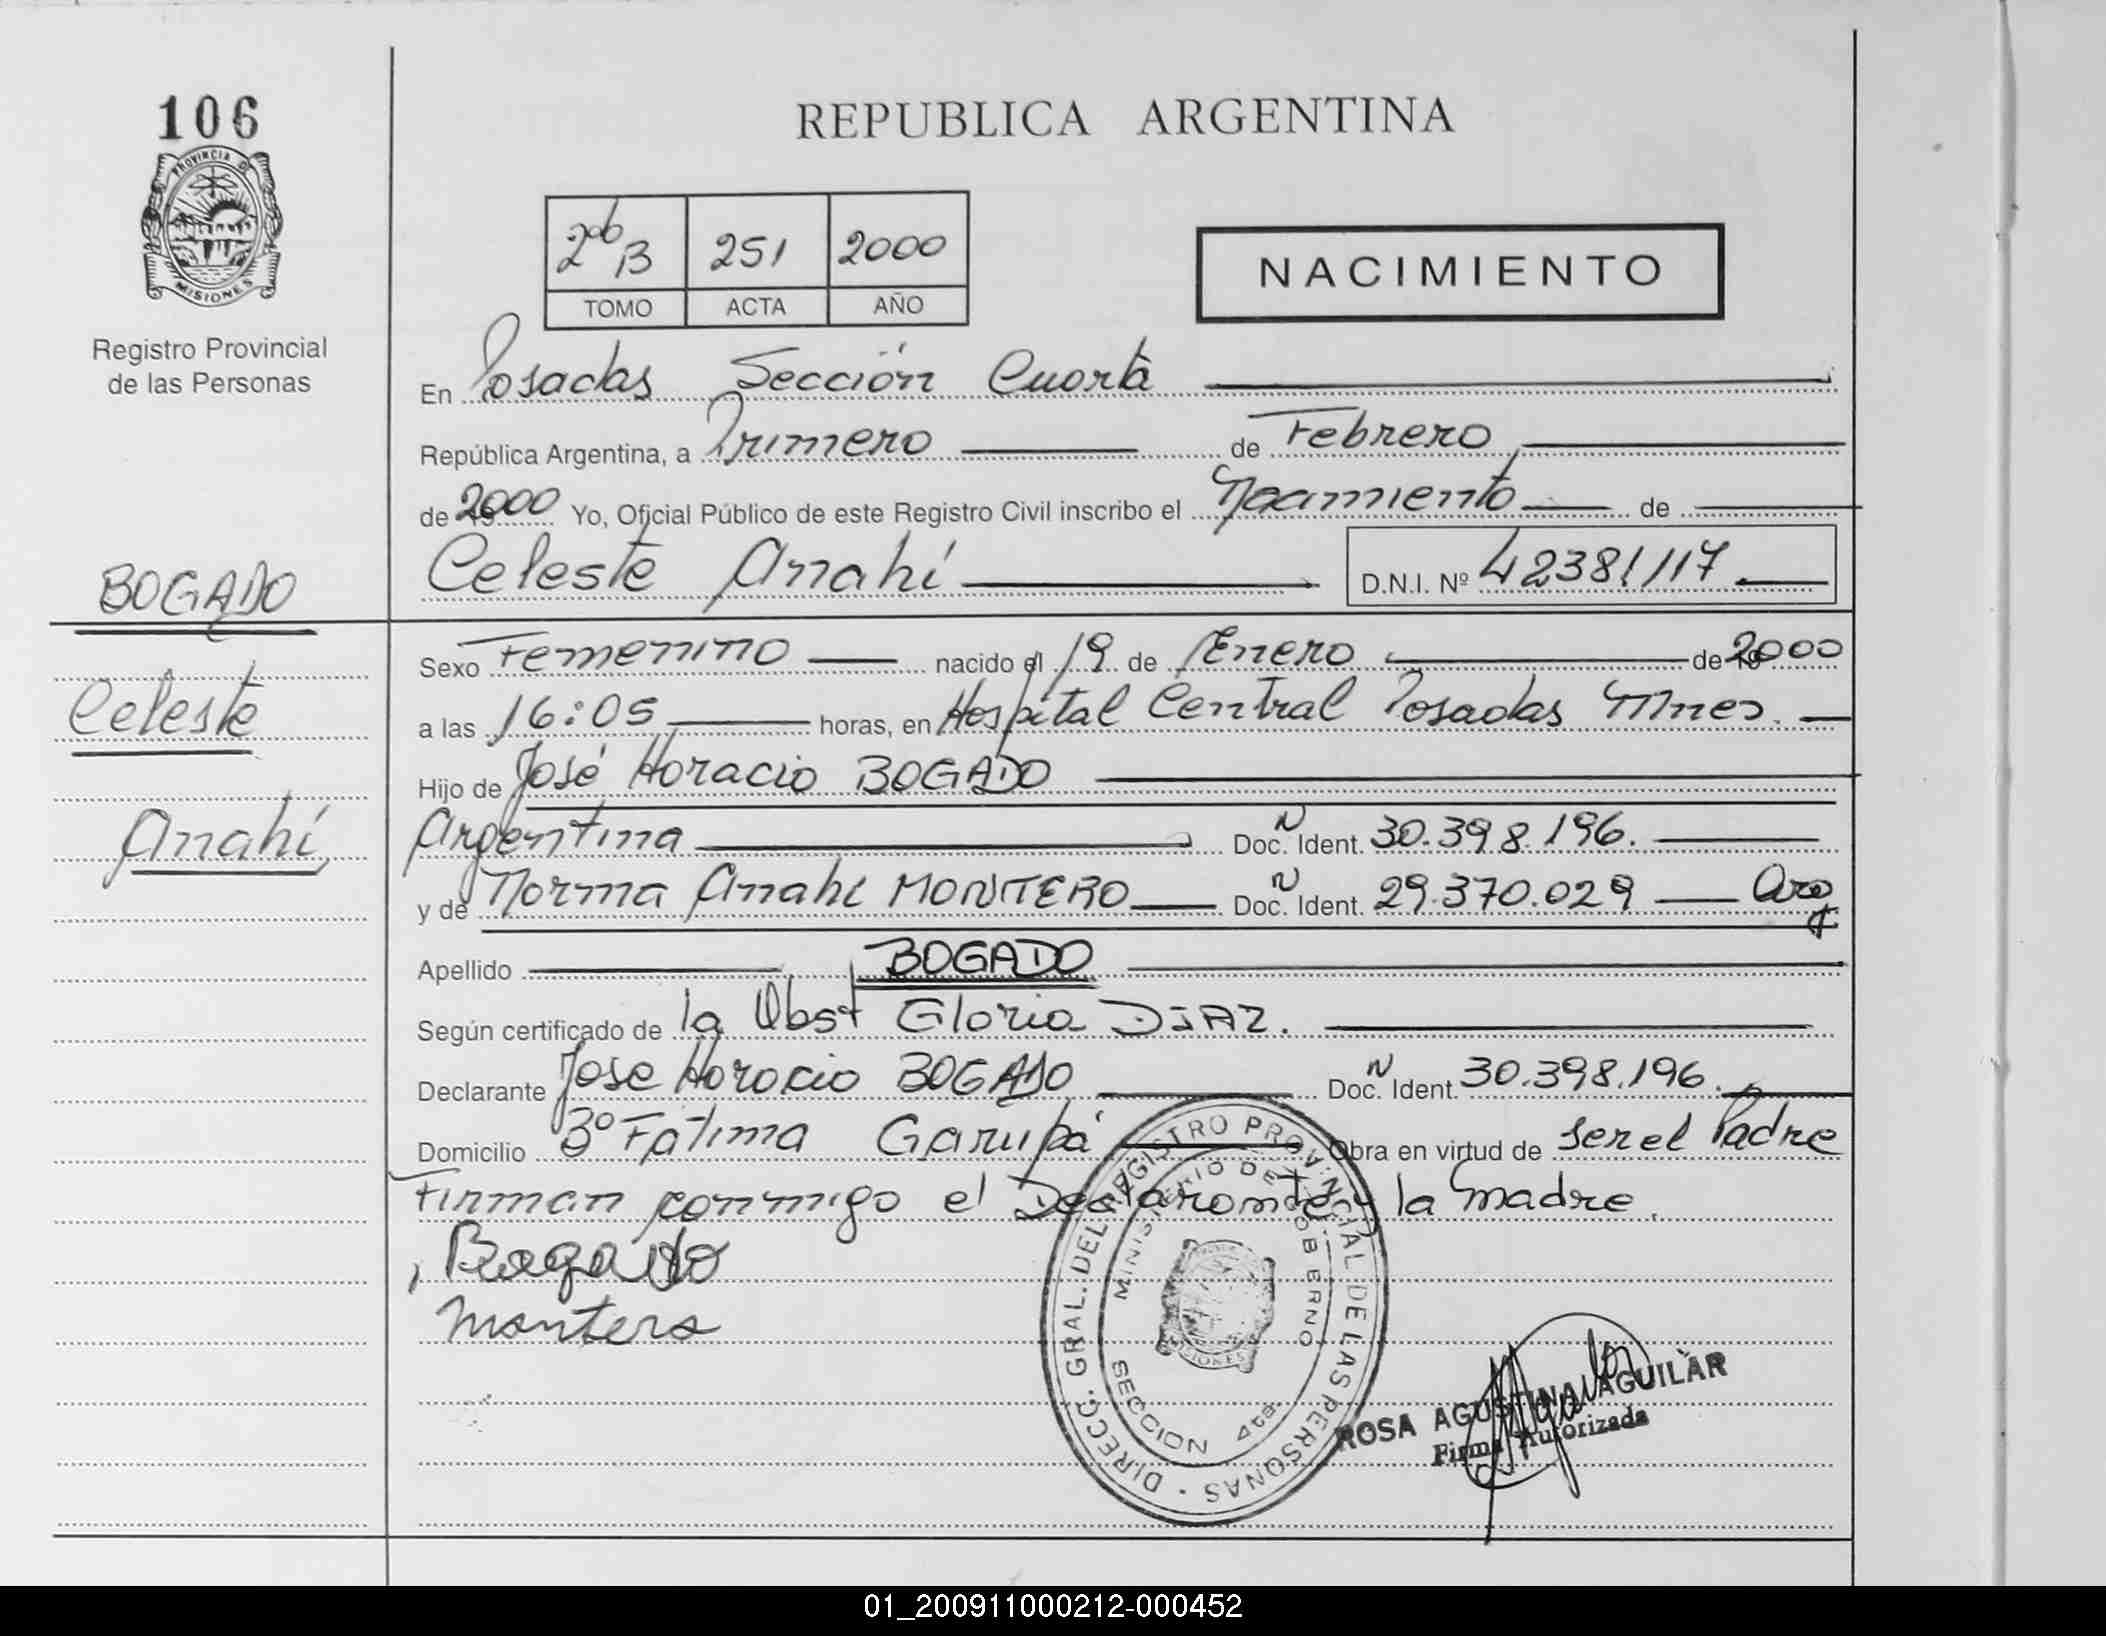 106
PROVINCIA DE
MISIONES
Registro Provincial
de las Personas
REPUBLICA ARGENTINA
2ºb B 251 2000
TOMO ACTA AÑO
NACIMIENTO
En Posadas Sección Cuarta
República Argentina, a Primero de Febrero
de 2000 Yo, Oficial Público de este Registro Civil inscribo el Nacimiento de
Celeste Anahí D.N.I. Nº 42381117
BOGADO
Celeste
Anahí
Sexo Femenino nacido el 19 de Enero de 2000
a las 16:05 horas, en Hospital Central Posadas Mnes.
Hijo de José Horacio BOGADO
Argentina Doc. N Ident. 30.398.196.
y de Norma Anahi MONTERO Doc. N Ident. 29.370.029 Arg
Apellido BOGADO
Según certificado de la Obst Gloria DIAZ.
Declarante Jose Horacio BOGADO Doc. N Ident. 30.398.196.
Domicilio Bº Fátima Garupá Obra en virtud de ser el Padre
Firman conmigo el Declarante y la madre.
Bogado
Montero
DIRECC. GRAL. DEL REGISTRO PROVINCIAL DE LAS PERSONAS
MINISTERIO DE GOBIERNO
SECCION 4ta.
ROSA AGUSTINA AGUILAR
Firma Autorizada
01_200911000212-000452